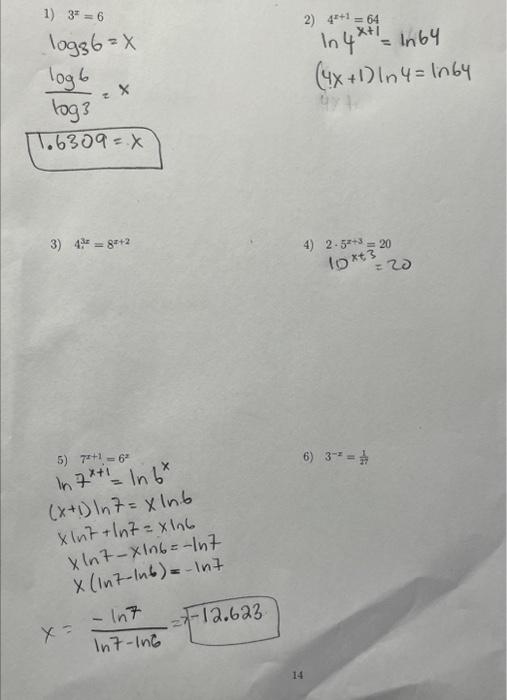 1) 3^x = 6
log₃6 = x
log6/log3 = x
1.6309 = x
2) 4^{x+1} = 64
ln4^{x+1} = ln64
(4x+1)ln4 = ln64
3) 4^{3x} = 8^{x+2}
4) 2 · 5^{x+3} = 20
10^{x+3} = 20
5) 7^{x+1} = 6^x
ln7^{x+1} = ln6^x
(x+1)ln7 = xln6
xln7 + ln7 = xln6
xln7 - xln6 = -ln7
x(ln7-ln6) = -ln7
x = -ln7/ln7-ln6 = -12.623
6) 3^{-x} = 1/27
14